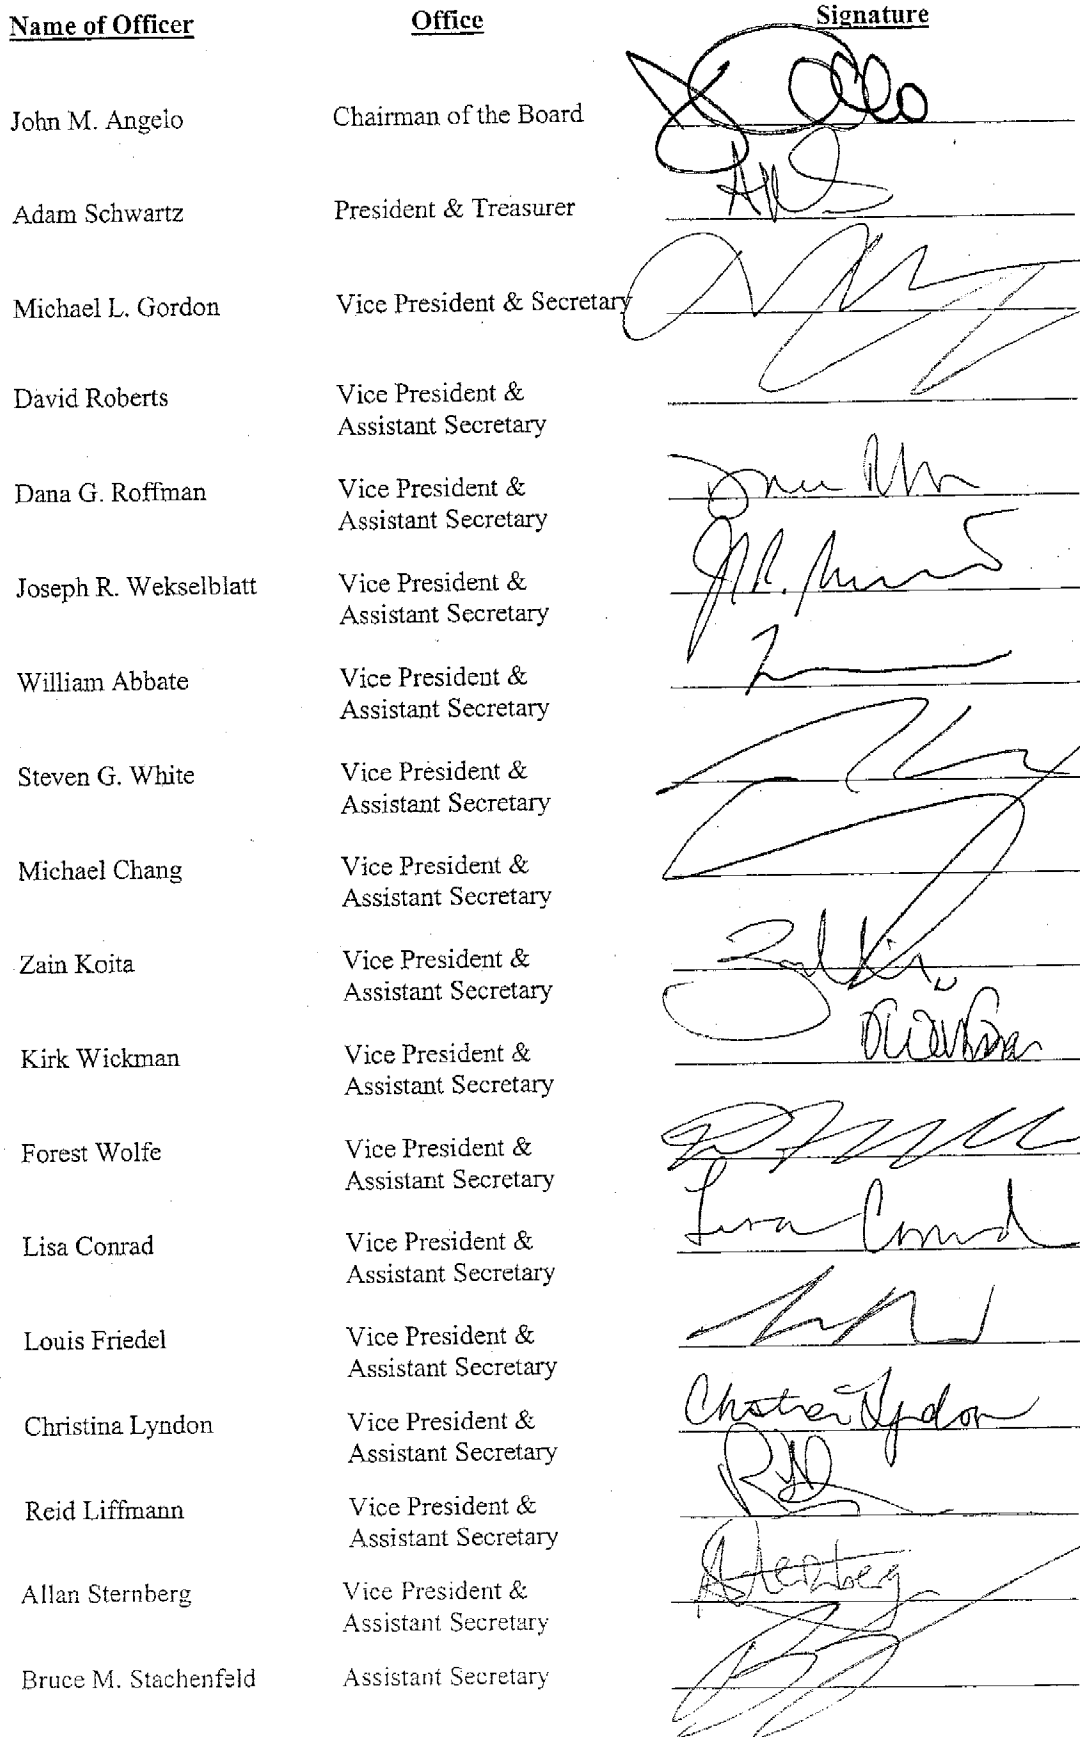 Name of Officer Office Signature
John M. Angelo Chairman of the Board
Adam Schwartz President & Treasurer
Michael L. Gordon Vice President & Secretary
David Roberts Vice President &
Assistant Secretary
Dana G. Roffman Vice President &
Assistant Secretary
Joseph R. Wekselblatt Vice President &
Assistant Secretary
William Abbate Vice President &
Assistant Secretary
Steven G. White Vice President &
Assistant Secretary
Michael Chang Vice President &
Assistant Secretary
Zain Koita Vice President &
Assistant Secretary
Kirk Wickman Vice President &
Assistant Secretary
Forest Wolfe Vice President &
Assistant Secretary
Lisa Conrad Vice President & Lisa Conrad
Assistant Secretary
Louis Friedel Vice President &
Assistant Secretary
Christina Lyndon Vice President & Christina Lyndon
Assistant Secretary
Reid Liffmann Vice President &
Assistant Secretary
Allan Sternberg Vice President & ASternberg
Assistant Secretary
Bruce M. Stachenfeld Assistant Secretary